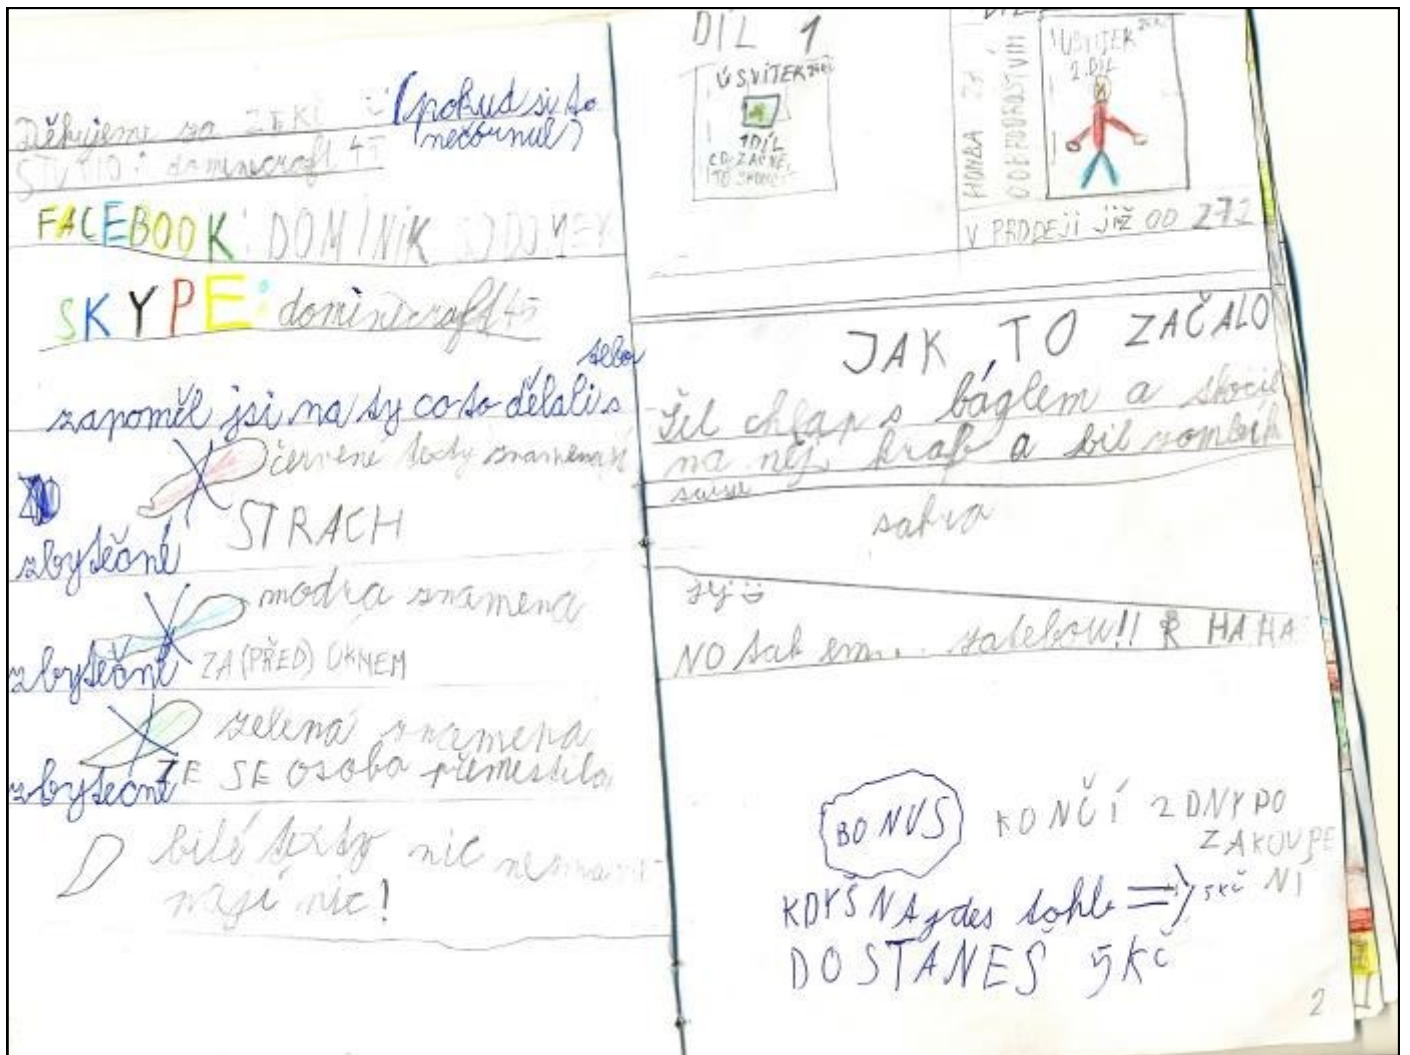 Děkujeme za 25KČ (pokud si to
nečornul)
STUDIO: dominecraft 45
FACEBOOK: DOMINIK
SKYPE: dominecraft45
zapoměl jsi na ty co to dělali s
tebou
červené texty znamenají
STRACH
zbytečné
modra znamena
ZA (PŘED) OKNEM
zbytečné
zelená znamena
ŽE SE OSOBA přemestila
zbytečné
bilé texty nic
nic!
DÍL 1
ÚSVITEK
1 DÍL
CO ZAČNE,
TO SKONČÍ
HONBA ZA
DOBRODRUSTVIM
ÚSVITEK
2. DÍL
V PRODEJI již OD 27.2
JAK TO ZAČALO
Šel chlap s báglem a skočil
na něj krab a bil zombík
sakra
jejj
NO tak em... satebou!! HA HA
BONUS
KONČÍ 2 DNY PO
ZAKOUPE
NÍ
KDYŠ NAjdes tohle => 5KČ
DOSTANEŠ 5KČ
2